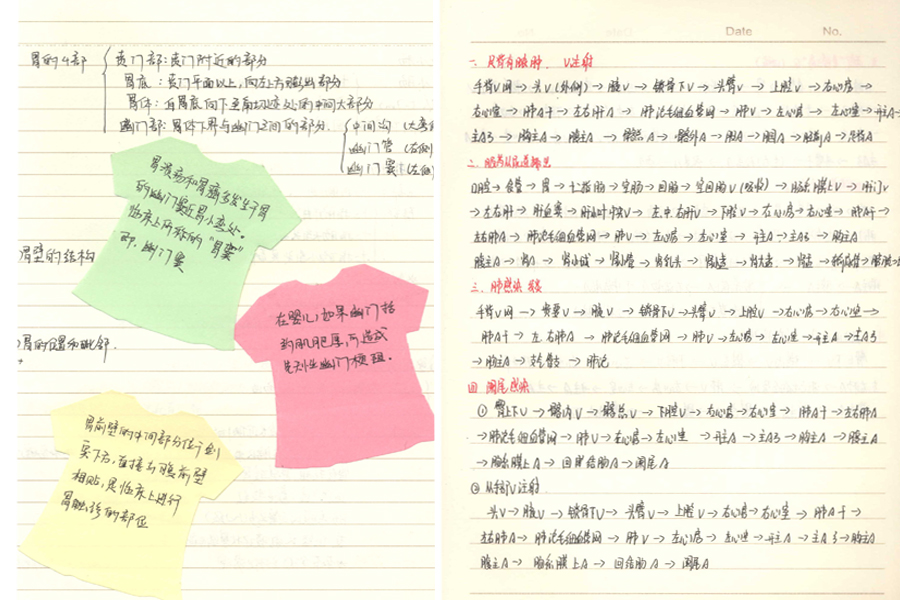 胃的4部
贲门部:贲门附近的部分
胃底:贲门平面以上,向左上方膨出部分
胃体:自胃底向下至角切迹处的中间大部分
幽门部:胃体下界与幽门之间的部分.
中间沟
幽门管(右侧)
幽门窦(左侧)
胃溃疡和胃癌多发生于胃
的幽门窦近胃小弯处.
临床上所称的"胃窦"
即.幽门窦
胃壁的结构
在婴儿如果幽门括
约肌肥厚,可造成
先天性幽门梗阻.
胃的位置和毗邻.
胃前壁的中间部分位于剑
突下方,直接与腹前壁
相贴,是临床上进行
胃触诊的部位
Date No.
V注射
手背V网→头V→腋V→锁骨下V→头臂V→上腔V→右心房→
右心室→肺A干→左右肺A→肺泡毛细血管网→肺V→左心房→左心室→升主A→
主A弓→胸主A→腹主A→髂总A→髂外A→股A→腘A→胫前A→足背A
口腔→食管→胃→十二指肠→空肠→回肠→空回肠V(吸收)→肠系膜上V→肝门V
→左右肝→肝血窦→肝小叶中央V→左中右肝V→下腔V→右心房→右心室→肺A干→
左右肺A→肺泡毛细血管网→肺V→左心房→左心室→升主A→主A弓→胸主A
腹主A→肾A→肾小球→肾小管→肾乳头→肾小盏→肾大盏→肾盂→输尿管→膀胱
三、肺感染
手背V网→贵要V→腋V→锁骨下V→头臂V→上腔V→右心房→右心室→
肺A干→左.右肺A→肺泡毛细血管网→肺V→左心房→左心室→升主A→主A弓
→胸主A→支气管A→肺泡
四 阑尾感染
① 臀上下V→髂内V→髂总V→下腔V→右心房→右心室→肺A干→左右肺A
→肺泡毛细血管网→肺V→左心房→左心室→升主A→主A弓→胸主A→腹主A
→肠系膜上A→回肠结肠A→阑尾A
② 从头V注射
头V→腋V→锁骨下V→头臂V→上腔V→右心房→右心室→肺A干→
左右肺A→肺泡毛细血管网→肺V→左心房→左心室→升主A→主A弓→胸主A
腹主A→肠系膜上A→回结肠A→阑尾A